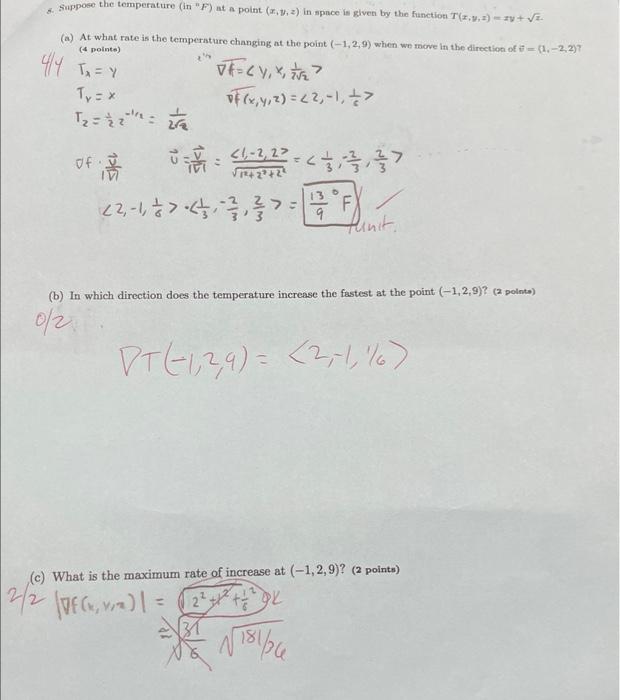 8. Suppose the temperature (in °F) at a point (x, y, z) in space is given by the function T(x, y, z) = xy + √z.
(a) At what rate is the temperature changing at the point (−1, 2, 9) when we move in the direction of v⃗ = ⟨1, −2, 2⟩?
(4 points)
4/4
Tx = y
z^1/2
∇f = <y, x, 1/2√z>
Ty = x
∇f(x,y,z) = <2, -1, 1/6>
Tz = 1/2 z^-1/2 = 1/2√z
∇f · v⃗/|v⃗|
u⃗ = v⃗/|v⃗| = <1,-2,2>/√1²+2²+2² = <1/3, -2/3, 2/3>
<2,-1,1/6> · <1/3, -2/3, 2/3> = 13/9 °F /unit.
(b) In which direction does the temperature increase the fastest at the point (−1, 2, 9)? (2 points)
0/2
∇T(-1,2,9) = <2,-1,1/6>
(c) What is the maximum rate of increase at (−1, 2, 9)? (2 points)
2/2
|∇f(x,y,z)| = √2²+1²+1/6² OK
= √31/6 √181/36